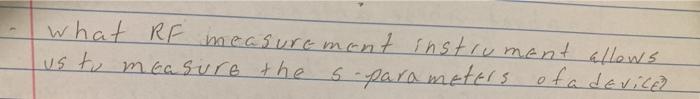 - what RF measurement instrument allows
us to measure the s-parameters of a device?